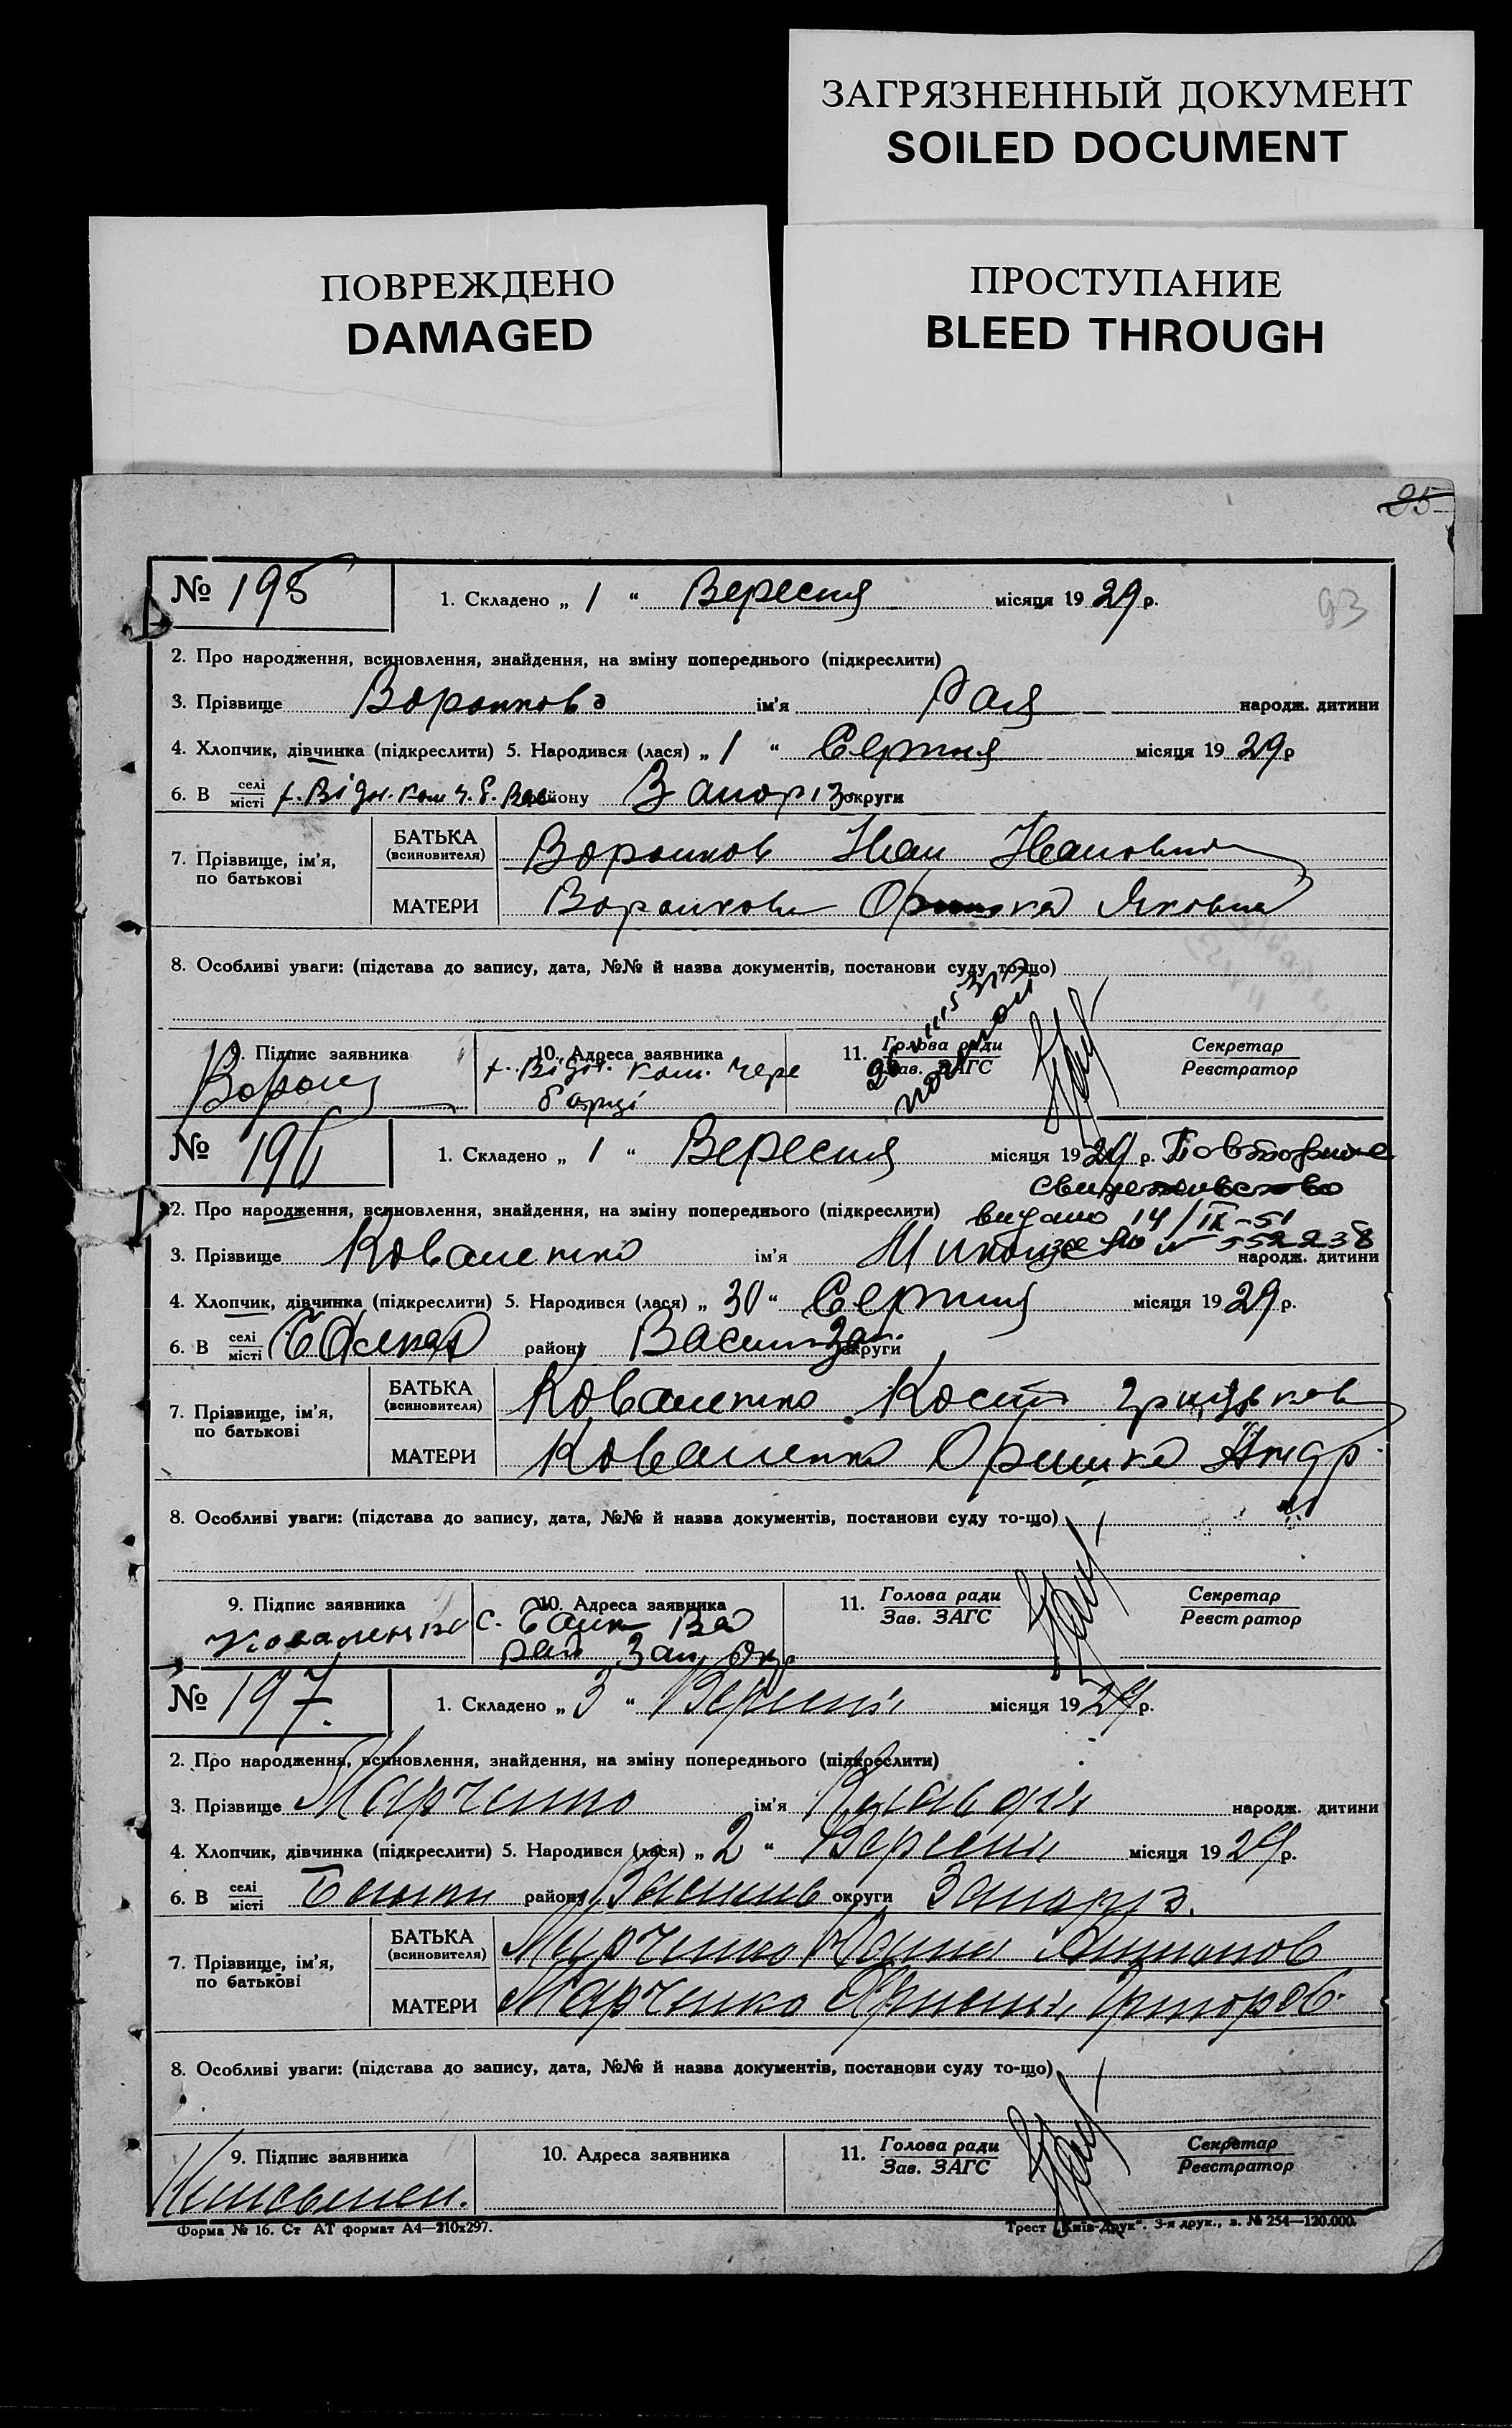 ЗАГРЯЗНЕННЫЙ ДОКУМЕНТ
SOILED DOCUMENT
ПОВРЕЖДЕНО
DAMAGED
ПРОСТУПАНИЕ
BLEED THROUGH
95
93
№ 195 1. Складено „ 1 “ Вересня місяця 1929 р.
2. Про народження, всиновлення, знайдення, на зміну попереднього (підкреслити)
3. Прізвище Воронкова ім’я Рая народж. дитини
4. Хлопчик, дівчинка (підкреслити) 5. Народився (лася) „ 1 “ Серпня місяця 1929 р
6. В селі місті х. Відн. ком. району Запоріз округи
7. Прізвище, ім’я, по батькові
БАТЬКА (всиновителя) Воронков Иван Иванович
МАТЕРИ Воронкова Яковна
8. Особливі уваги: (підстава до запису, дата, №№ й назва документів, постанови суду то-що)
9. Підпис заявника 10. Адреса заявника 11. Голова ради Зав. ЗАГС Секретар Реєстратор
х. Відн. ком.
№ 196 1. Складено „ 1 “ Вересня місяця 1929 р. Повторное
свидетельство
2. Про народження, всиновлення, знайдення, на зміну попереднього (підкреслити)
видано 14/IX-51
3. Прізвище Коваленко ім’я народж. дитини
№ 552238
4. Хлопчик, дівчинка (підкреслити) 5. Народився (лася) „ 30 “ Серпня місяця 1929 р.
6. В селі місті району Васил Зап. округи
7. Прізвище, ім’я, по батькові
БАТЬКА (всиновителя) Коваленко Кость Грицьков
МАТЕРИ Коваленко Оришка Андр.
8. Особливі уваги: (підстава до запису, дата, №№ й назва документів, постанови суду то-що)
9. Підпис заявника 10. Адреса заявника 11. Голова ради Зав. ЗАГС Секретар Реєстратор
Коваленко с. Балки Вас
рай Зап. Окр
№ 197. 1. Складено „ 3 “ Вересня місяця 1929 р.
2. Про народження, всиновлення, знайдення, на зміну попереднього (підкреслити)
3. Прізвище Марченко ім’я Клавдія народж. дитини
4. Хлопчик, дівчинка (підкреслити) 5. Народився (лася) „ 2 “ Вересня місяця 1929 р.
6. В селі місті Балки району Василів округи Запоріз.
7. Прізвище, ім’я, по батькові
БАТЬКА (всиновителя) Марченко
МАТЕРИ Марченко Григоров.
8. Особливі уваги: (підстава до запису, дата, №№ й назва документів, постанови суду то-що)
9. Підпис заявника 10. Адреса заявника 11. Голова ради Зав. ЗАГС Секретар Реєстратор
Форма № 16. Ст АТ формат А4—210х297. Трест „Київ-Друк“. 3-я друк., з. № 254—120.000.